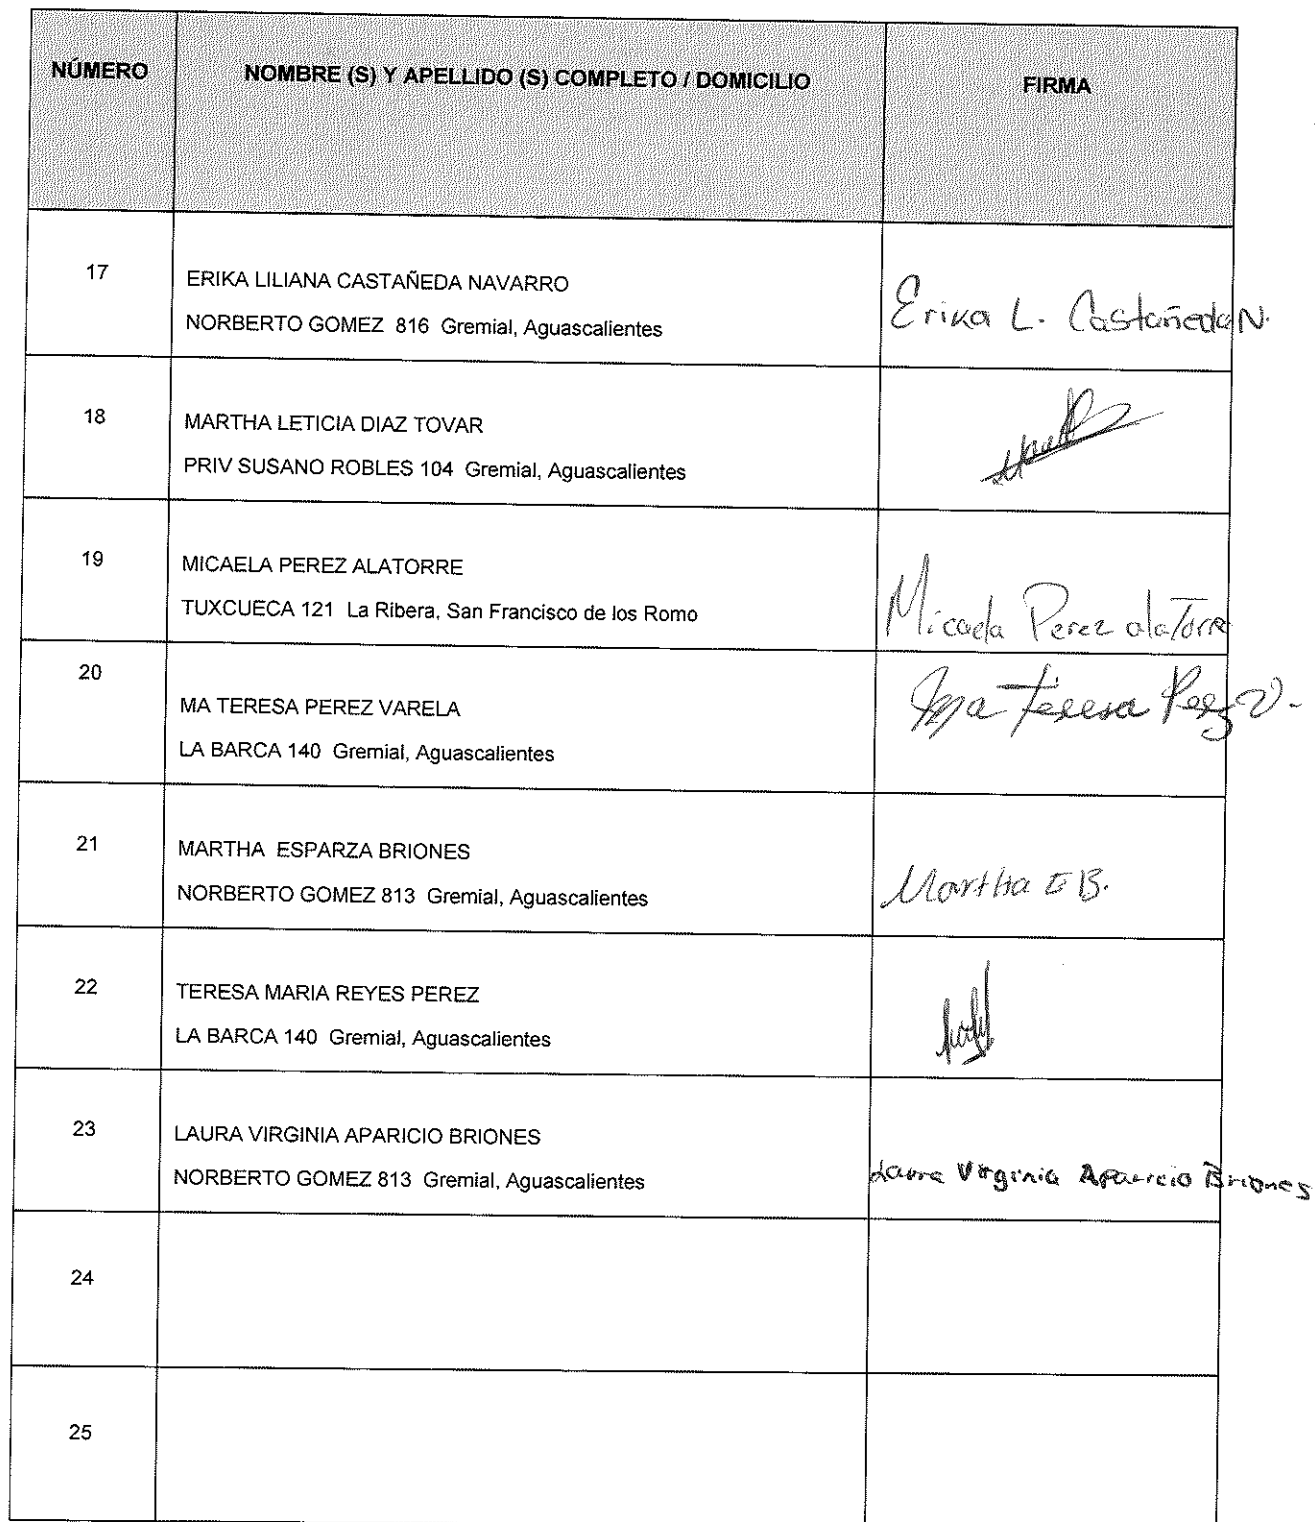 NÚMERO NOMBRE (S) Y APELLIDO (S) COMPLETO / DOMICILIO FIRMA
17 ERIKA LILIANA CASTAÑEDA NAVARRO
NORBERTO GOMEZ 816 Gremial, Aguascalientes
Erika L. Castañeda N.
18 MARTHA LETICIA DIAZ TOVAR
PRIV SUSANO ROBLES 104 Gremial, Aguascalientes
19 MICAELA PEREZ ALATORRE
TUXCUECA 121 La Ribera, San Francisco de los Romo
Micaela Perez alaTorre
20
MA TERESA PEREZ VARELA
LA BARCA 140 Gremial, Aguascalientes
Ma Teresa Perez V.
21 MARTHA ESPARZA BRIONES
NORBERTO GOMEZ 813 Gremial, Aguascalientes
Martha E B.
22 TERESA MARIA REYES PEREZ
LA BARCA 140 Gremial, Aguascalientes
23 LAURA VIRGINIA APARICIO BRIONES
NORBERTO GOMEZ 813 Gremial, Aguascalientes
Laura Virginia Aparicio Briones
24
25